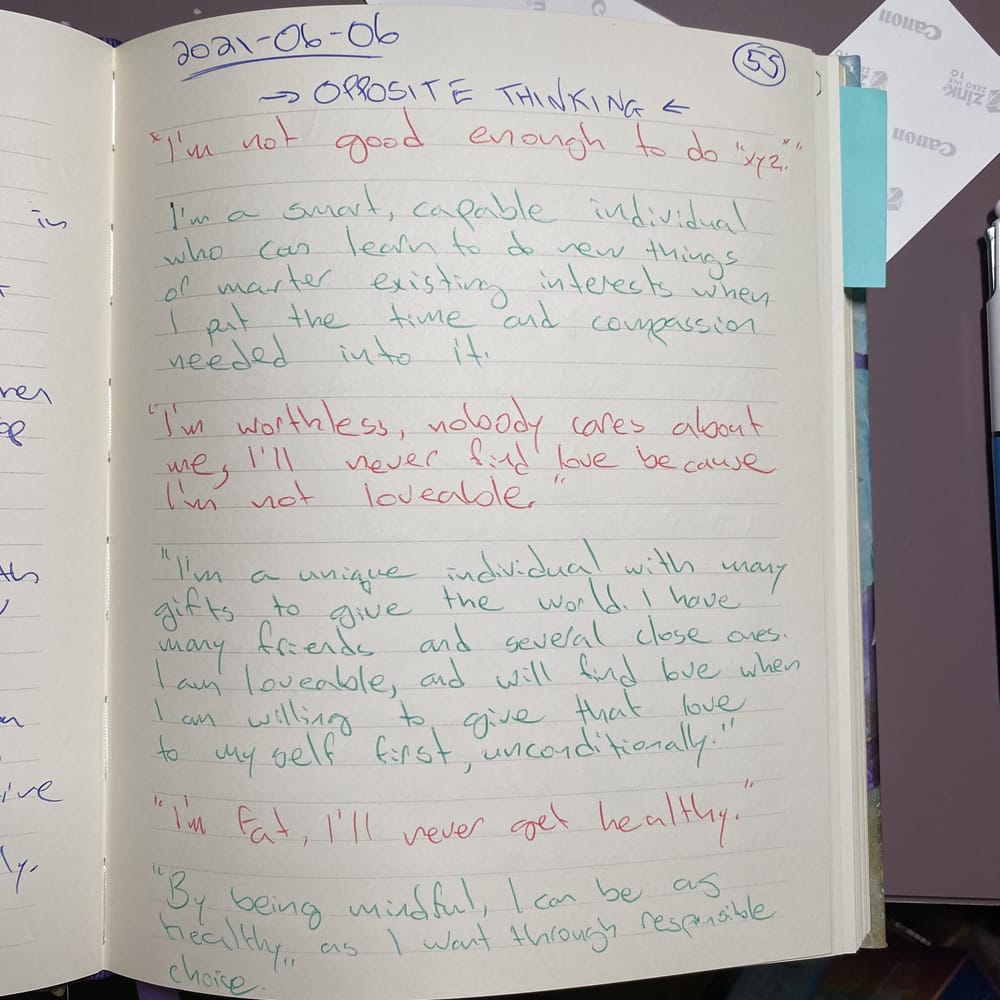 2021-06-06
55
→ OPPOSITE THINKING ←
"I'm not good enough to do "xyz.""
I'm a smart, capable individual
who can learn to do new things
or marter existing interests when
I put the time and compassion
needed into it.
"I'm worthless, nobody cares about
me, I'll never find love because
I'm not loveable."
"I'm a unique individual with many
gifts to give the world. I have
many friends and several close ones.
I am loveable, and will find love when
I am willing to give that love
to my self first, unconditionally."
"I'm fat, I'll never get healthy."
"By being mindful, I can be as
healthy as I want through responsible
choice."
in
ive
ly.
Canon
zink
ZERO INK
Canon